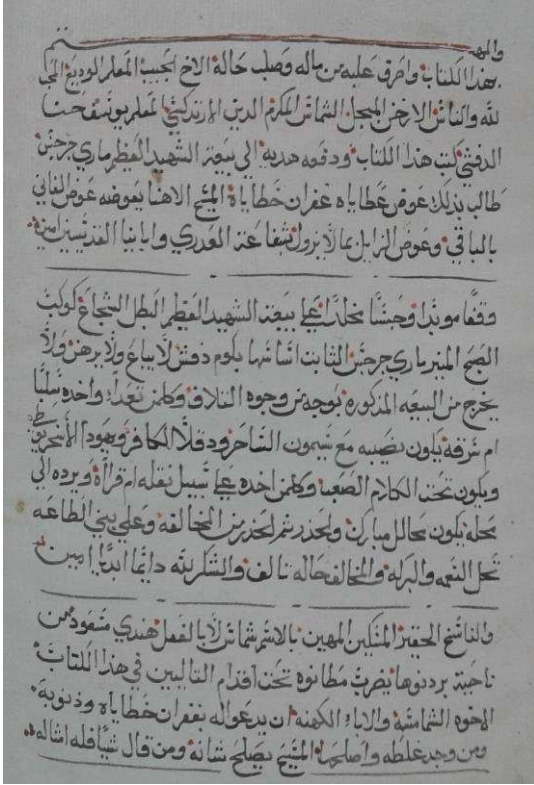 والمهتم
بهذا الكتاب واحرق عليه من ماله وصلب حاله الاخ الحبيب المعلم الوديع المحب
لله والناس الارخن المبجل الشماس المكرم الدين الارتدكسي المعلم يوسف حنا
الدفشي كتب هذا الكتاب ودفعه هديه الي بيعة الشهيد العظيم ماري جرجس
طالب بذلك عوض عطاياه غفران خطاياه المسيح الاهنا يعوضه عوض الفاني
بالباقي وعوض الزايل بما لا يزول بشفاعة العدري وابانيا القديسين امين
وقفا موبدا وحبسا مخلدا علي بيعة الشهيد العظيم البطل الشجاع كوكب
الصبح المنير ماري جرجس الثابت اساسها بكوم دفش لا يباع ولا يرهن ولا
يخرج من البيعه المذكوره بوجه من وجوه التلاف وكلمن تعدا واخده سلبا
ام سرقه يكون نصيبه مع سيمون الساحر ودقلا الكافر ويهودا الاسخريوطي
ويكون تحت الكلام الصعب وكلمن اخده علي سبيل نقله ام قراة ويرده الي
محله يكون محالل مبارك والحدر ثم الحدر من المخالفه وعلي بني الطاعه
تحل النعمه والبركه والمخالف حاله تالف والشكر لله دايما ابديا امين
والناسخ الحقير المسكين المهين بالاسم شماس لا بالفعل هندي منقود من
ناحية بردنوها يضرب مطانوه تحت اقدام التاليين في هذا الكتاب
الاخوه الشمامسه والاباء الكهنه ان يدعوا له بغفران خطاياه وذنوبه
ومن وجد غلطه واصلحها المسيح يصلح شانه ومن قال شيا فله امثاله